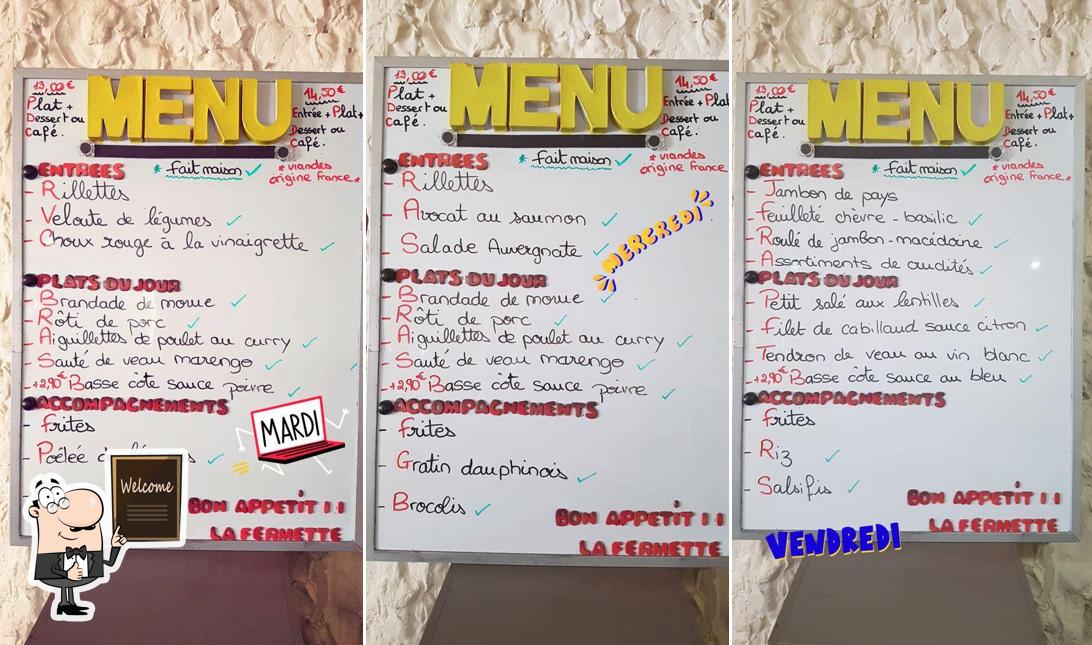 13,00€
Plat +
Dessert ou
Café.
MENU
14,50€
Entrée + Plat +
Dessert ou
Café.
* Fait maison ✓
* viandes
origine France *
ENTREES
- Rillettes
- Velouté de légumes ✓
- Choux rouge à la vinaigrette ✓
PLATS DU JOUR
- Brandade de morue ✓
- Rôti de porc ✓
- Aiguillettes de poulet au curry ✓
- Sauté de veau marengo ✓
- +2,90€ Basse côte sauce poivre ✓
ACCOMPAGNEMENTS
- Frites
- Poêlée
MARDI
Welcome
BON APPETIT !!
LA FERMETTE
13,00€
Plat +
Dessert ou
Café.
MENU
14,50€
Entrée + Plat
Dessert ou
Café.
* Fait maison ✓
* viandes
origine France *
ENTREES
- Rillettes
- Avocat au saumon ✓
- Salade Auvergnate ✓
MERCREDI
PLATS DU JOUR
- Brandade de morue ✓
- Rôti de porc ✓
- Aiguillettes de poulet au curry ✓
- Sauté de veau marengo ✓
- +2,90€ Basse côte sauce poivre ✓
ACCOMPAGNEMENTS
- Frites
- Gratin dauphinois ✓
- Brocolis ✓
BON APPETIT !!
LA FERMETTE
13,00€
Plat +
Dessert ou
Café.
MENU
14,50€
Entrée + Plat +
Dessert ou
Café.
* Fait maison ✓
* viandes
origine France *
ENTREES
- Jambon de pays
- Feuilleté chèvre - basilic ✓
- Roulé de jambon - macédoine ✓
- Assortiments de crudités ✓
PLATS DU JOUR
- Petit salé aux lentilles ✓
- Filet de cabillaud sauce citron ✓
- Tendron de veau au vin blanc ✓
- +2,90€ Basse côte sauce au bleu ✓
ACCOMPAGNEMENTS
- Frites
- Riz ✓
- Salsifis ✓
BON APPETIT !!
LA FERMETTE
VENDREDI